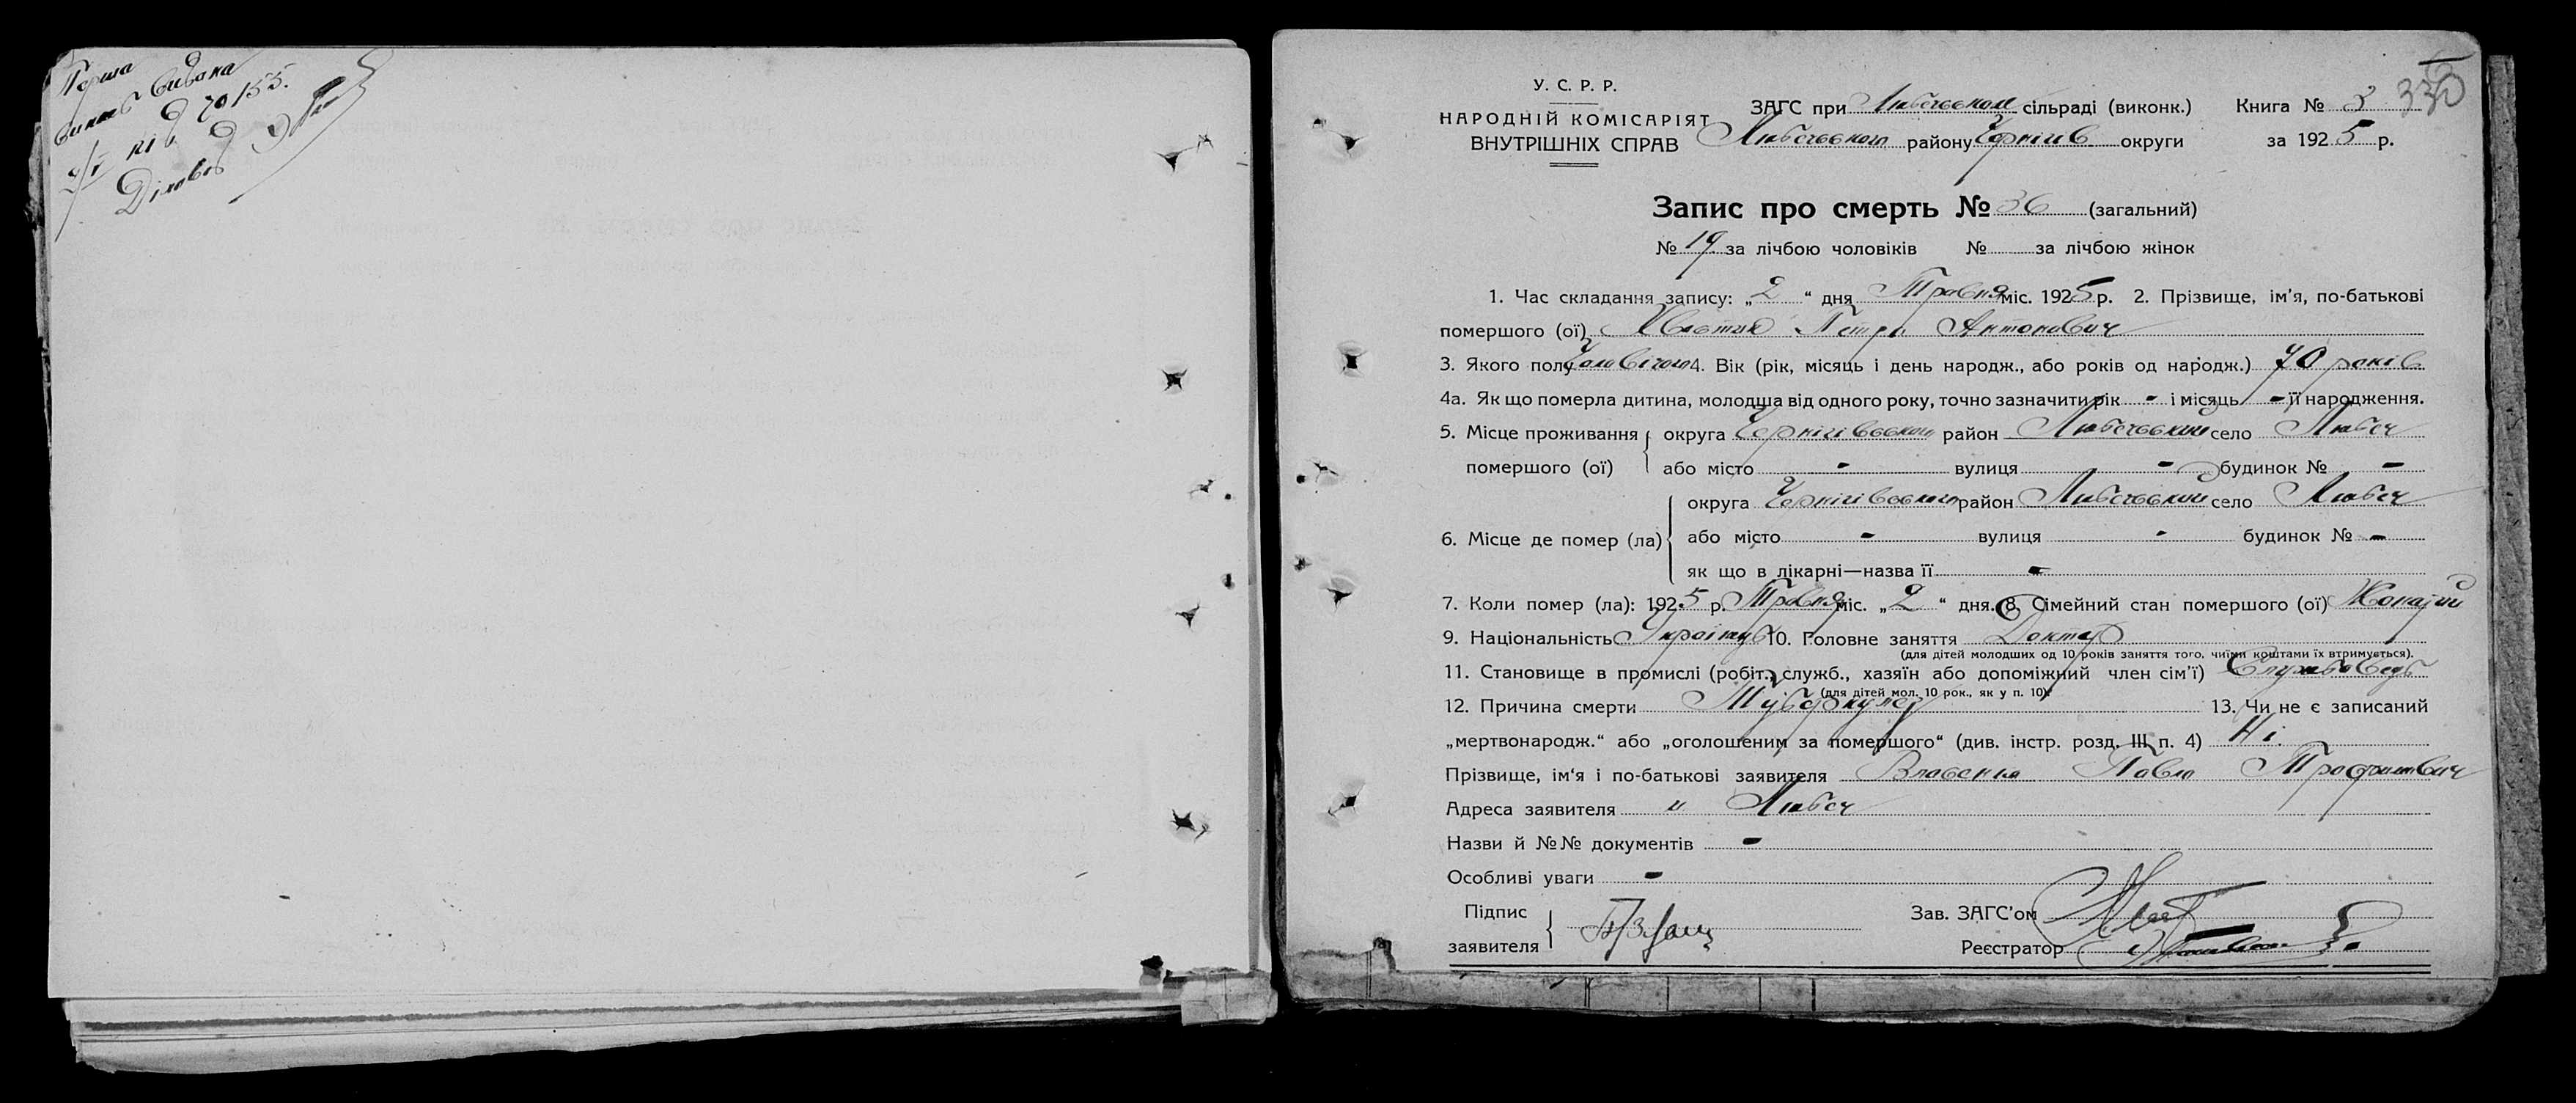 Перша
видана
70155.
У. С. Р. Р.
НАРОДНІЙ КОМІСАРІЯТ
ВНУТРІШНІХ СПРАВ
ЗАГС при Любечськом сільраді (виконк.)
Любечського району Чернігів округи
Книга № 3
330
за 1925 р.
Запис про смерть № 36 (загальний)
№ 19 за лічбою чоловіків № за лічбою жінок
1. Час складання запису: „2“ дня Травня міс. 1925 р. 2. Прізвище, ім’я, по-батькові
помершого (ої) Петро Антонович
3. Якого полу Чоловічого 4. Вік (рік, місяць і день народж., або років од народж.) 70 років
4а. Як що померла дитина, молодша від одного року, точно зазначити рік - і місяць - її народження.
5. Місце проживання помершого (ої) округа Чернігівського район Любечський село Любеч
або місто - вулиця - будинок № -
6. Місце де помер (ла) округа Чернігівського район Любечський село Любеч
або місто - вулиця - будинок № -
як що в лікарні—назва її -
7. Коли помер (ла): 1925 р. Травня міс. „2“ дня. 8. Сімейний стан помершого (ої) Жонатий
9. Національність 10. Головне заняття Доктор
(для дітей молодших од 10 років заняття того, чиїми коштами їх втримується).
11. Становище в промислі (робіт., служб., хазяїн або допоміжний член сім’ї)
(для дітей мол. 10 рок., як у п. 10)
12. Причина смерти Туберкульоз 13. Чи не є записаний
„мертвонародж.“ або „оголошеним за помершого“ (див. інстр. розд. III п. 4) Ні.
Прізвище, ім‘я і по-батькові заявителя Павло Трофимович
Адреса заявителя м Любеч
Назви й №№ документів -
Особливі уваги -
Підпис заявителя
Зав. ЗАГС’ом
Реєстратор